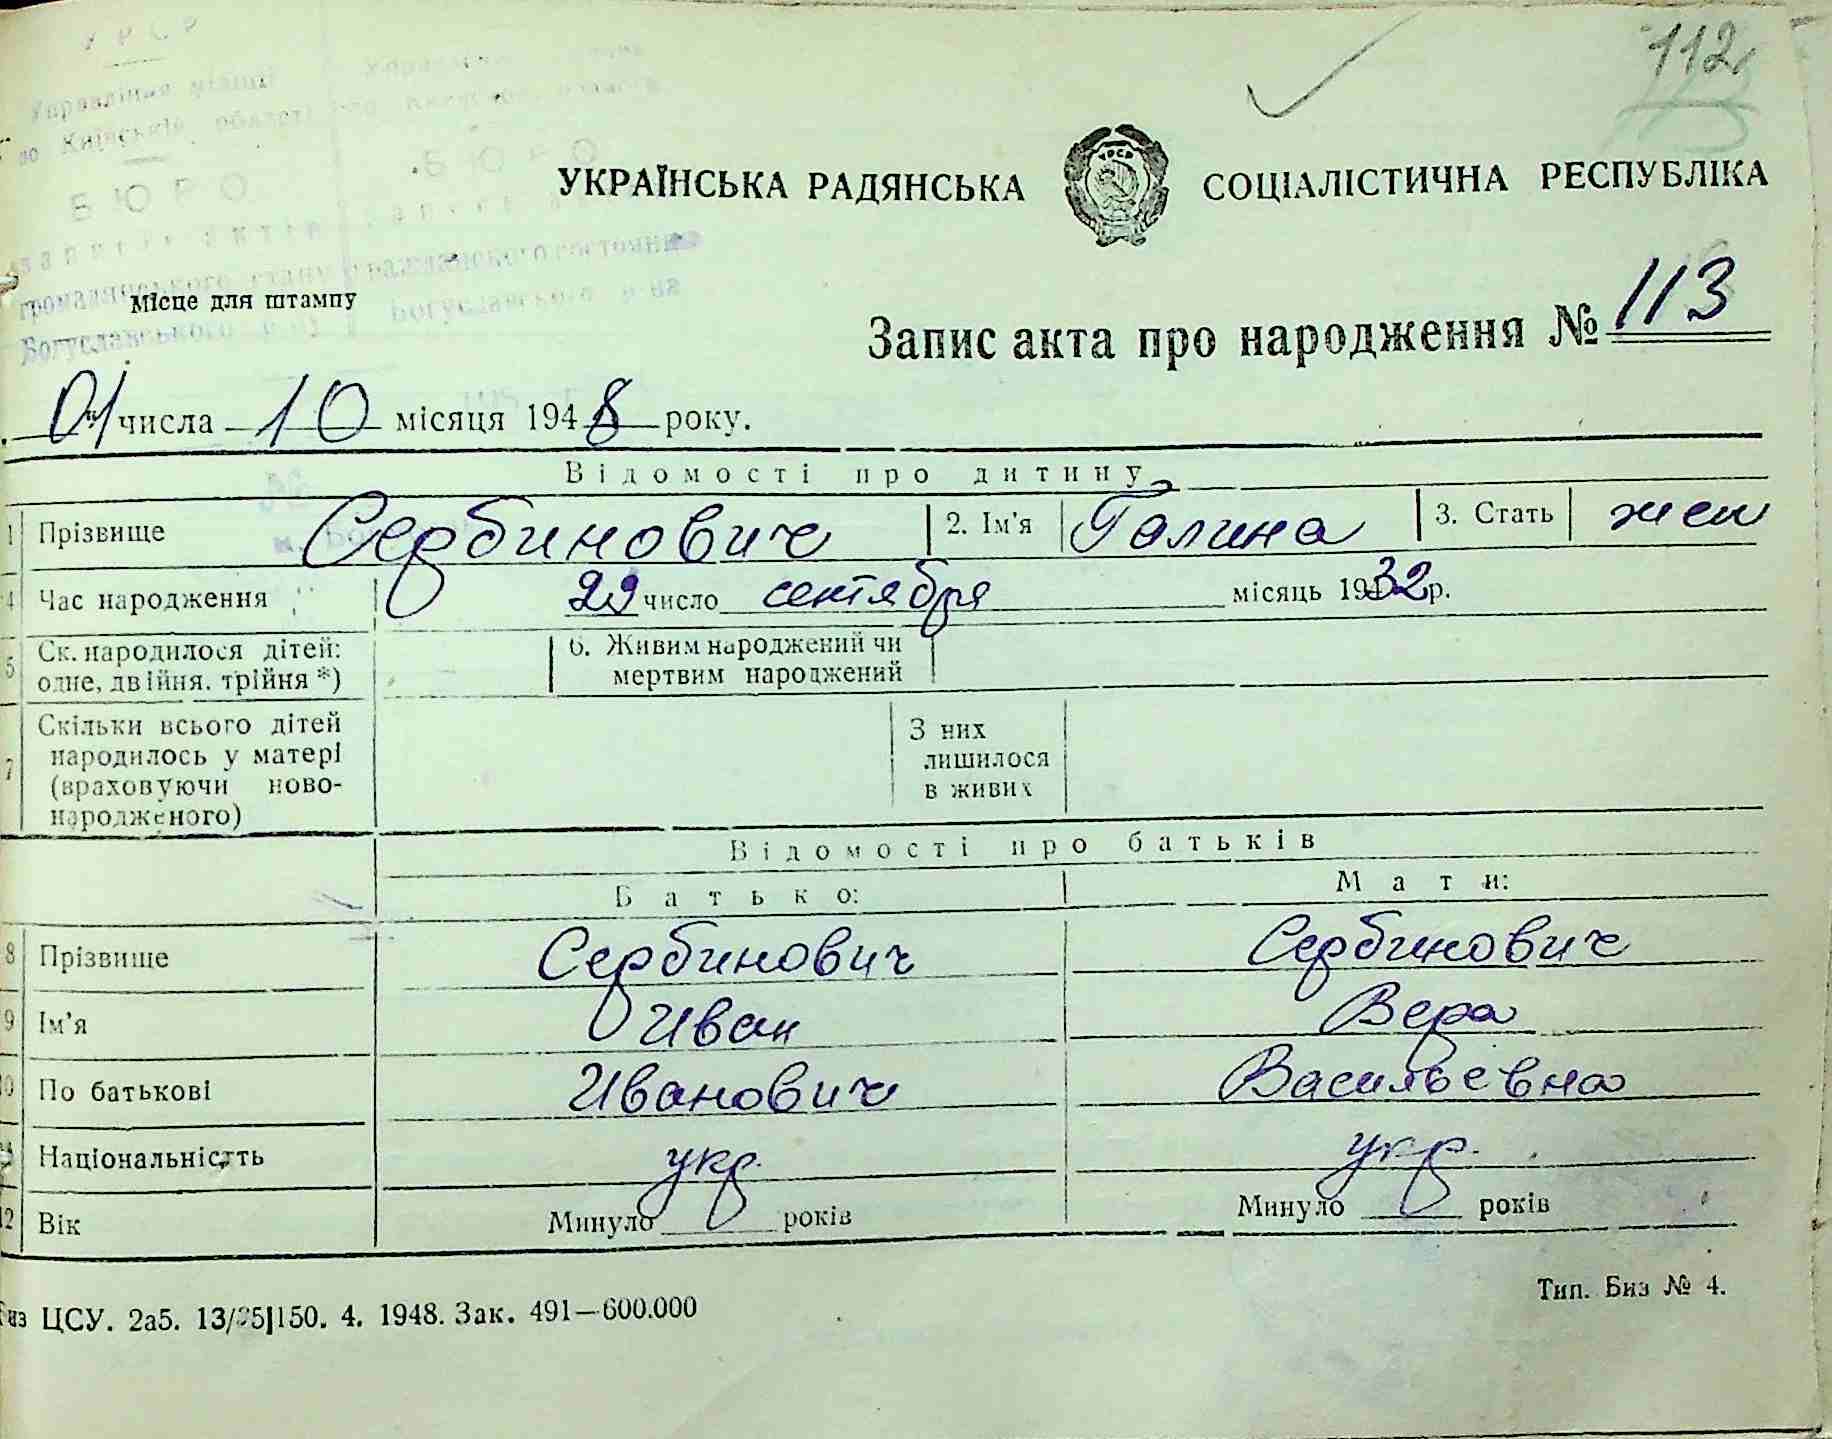 УРСР
Управління міліції
по Київській області
БЮРО
записів актів
громадянського стану
Богуславського р-ну
БЮРО
гражданского состояния
Богуславского р-на
112
УКРАЇНСЬКА РАДЯНСЬКА СОЦІАЛІСТИЧНА РЕСПУБЛІКА
УРСР
Місце для штампу
Запис акта про народження № 113
01 числа 10 місяця 1948 року.
Відомості про дитину
1 Прізвище Сербинович 2. Ім'я Галина 3. Стать жен
4 Час народження 29 число сентября місяць 1932 р.
5 Ск. народилося дітей: 6. Живим народжений чи
одне, двійня, трійня *) мертвим народжений
7 Скільки всього дітей народилось у матері (враховуючи ново-народженого) З них лишилося в живих
Відомості про батьків
Батько: Мати:
8 Прізвище Сербинович Сербинович
9 Ім'я Иван Вера
10 По батькові Иванович Васильевна
Національність укр. укр.
12 Вік Минуло років Минуло років
ЦСУ. 2а5. 13/ 150. 4. 1948. Зак. 491—600.000
Тип. Биз № 4.